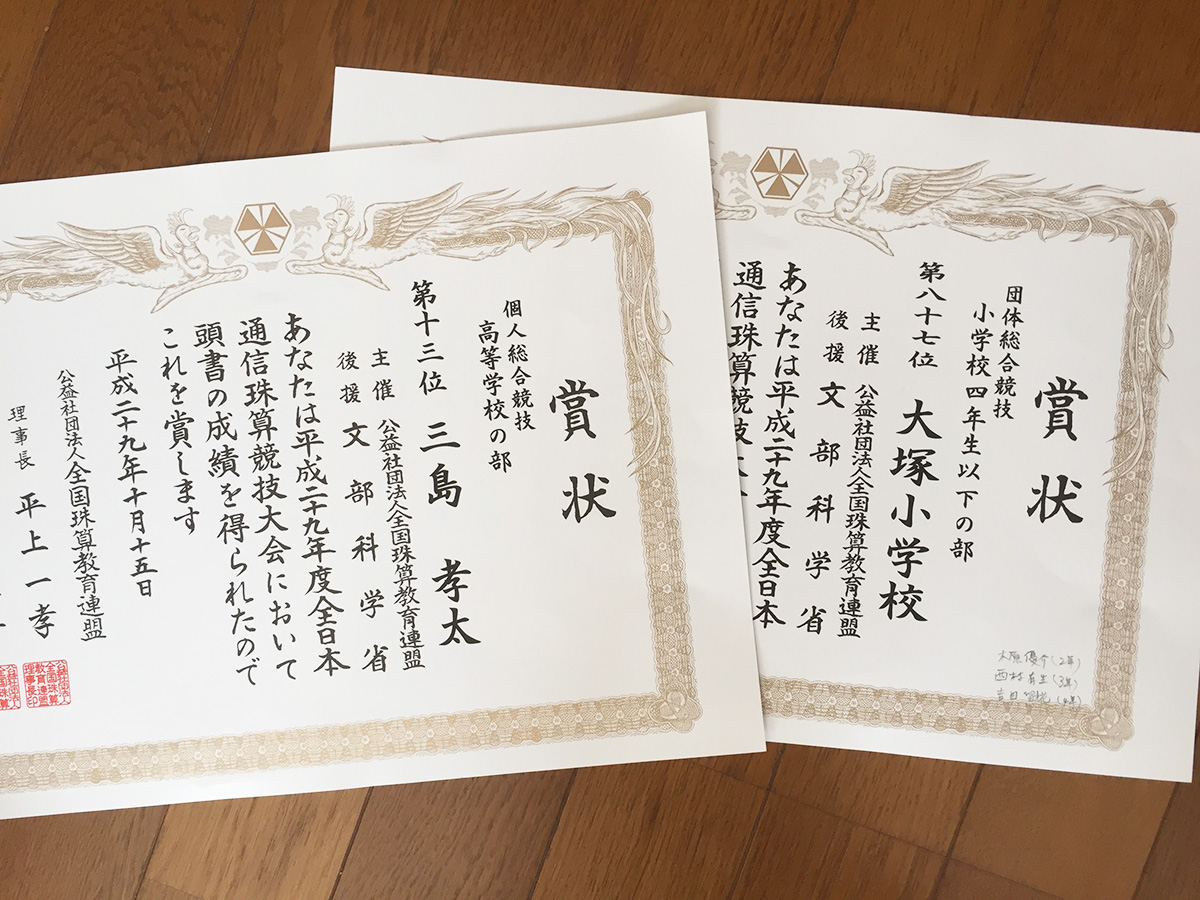 賞状
団体総合競技
小学校四年生以下の部
第八十七位 大塚小学校
主催 公益社団法人全国珠算教育連盟
後援 文部科学省
あなたは平成二十九年度全日本
通信珠算競技
(2年)
西村
(3年)
吉田
(4年)
賞状
個人総合競技
高等学校の部
第十三位 三島 孝太
主催 公益社団法人全国珠算教育連盟
後援 文部科学省
あなたは平成二十九年度全日本
通信珠算競技大会において
頭書の成績を得られたので
これを賞します
平成二十九年十月十五日
公益社団法人全国珠算教育連盟
理事長 平上一孝
公益社団法人
全国珠算
教育連盟
理事長印
公益社団法人
全国珠算